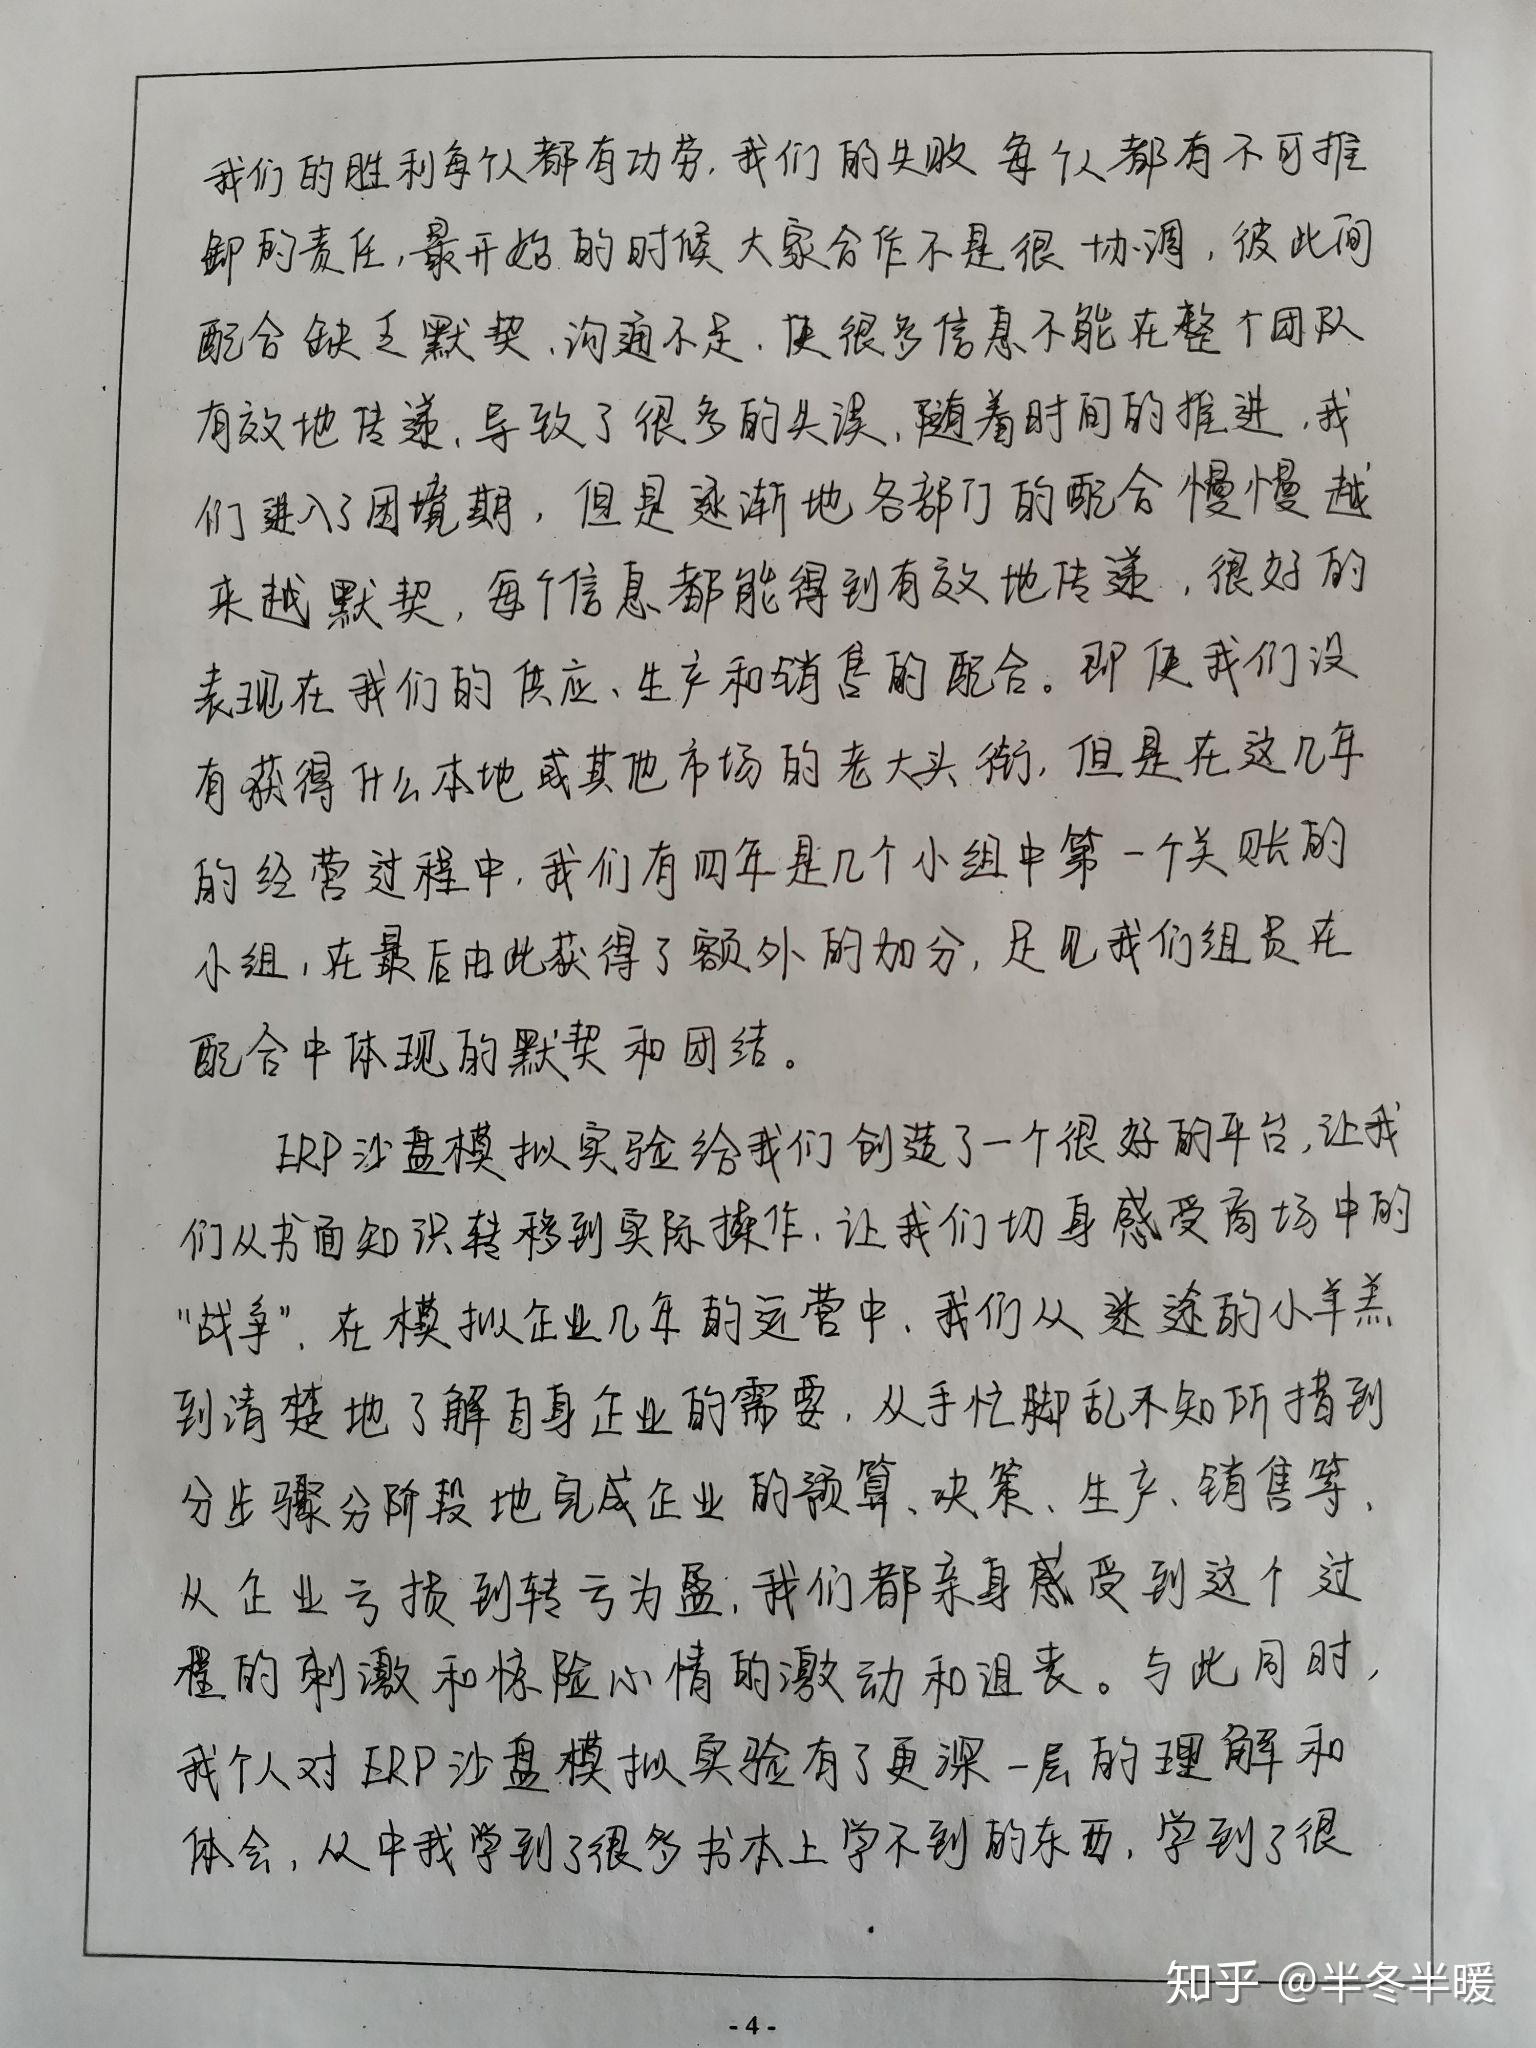 我们的胜利每个人都有功劳,我们的失败每个人都有不可推
卸的责任,最开始的时候大家合作不是很协调,彼此间
配合缺乏默契、沟通不足,使很多信息不能在整个团队
有效地传递,导致了很多的失误,随着时间的推进,我
们进入了困境期,但是逐渐地各部门的配合慢慢越
来越默契,每个信息都能得到有效地传递,很好的
表现在我们的供应、生产和销售的配合。即使我们没
有获得什么本地或其他市场的老大头衔,但是在这几年
的经营过程中,我们有四年是几个小组中第一个关账的
小组,在最后由此获得了额外的加分,足见我们组员在
配合中体现的默契和团结。
ERP沙盘模拟实验给我们创造了一个很好的平台,让我
们从书面知识转移到实际操作,让我们切身感受商场中的
"战争",在模拟企业几年的运营中,我们从迷途的小羊羔
到清楚地了解自身企业的需要,从手忙脚乱不知所措到
分步骤分阶段地完成企业的预算、决策、生产、销售等、
从企业亏损到转亏为盈,我们都亲身感受到这个过
程的刺激和惊险心情的激动和沮丧。与此同时,
我个人对ERP沙盘模拟实验有了更深一层的理解和
体会,从中我学到了很多书本上学不到的东西,学到了很
知乎 @半冬半暖
-4-